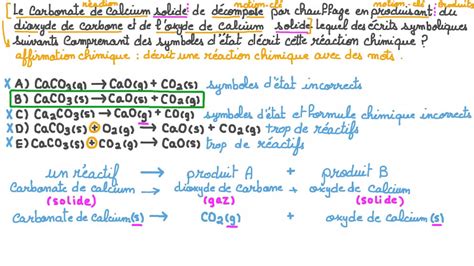 réaction notion-clé notion-clé produits
[Le carbonate de calcium solide se décompose par chauffage en produisant du
dioxyde de carbone et de l'oxyde de calcium solide. Lequel des écrits symboliques
suivants comprenant des symboles d'état décrit cette réaction chimique ?
affirmation chimique : décrit une réaction chimique avec des mots.
X A) CaCO₃(g) → CaO(g) + CO₂(s) symboles d'état incorrects
B) CaCO₃(s) → CaO(s) + CO₂(g)
X C) Ca₂CO₃(s) → CaO(g) + CO(g) symboles d'état et formule chimique incorrects
X D) CaCO₃(s) + O₂(g) → CaO(s) + CO₂(g) trop de réactifs
X E) CaCO₃(s) + CO₂(g) → CaO(s) trop de réactifs
un réactif → produit A + produit B
Carbonate de calcium → dioxyde de carbone + oxyde de calcium
(solide) (gaz) (solide)
Carbonate de calcium(s) → CO₂(g) + oxyde de calcium(s)